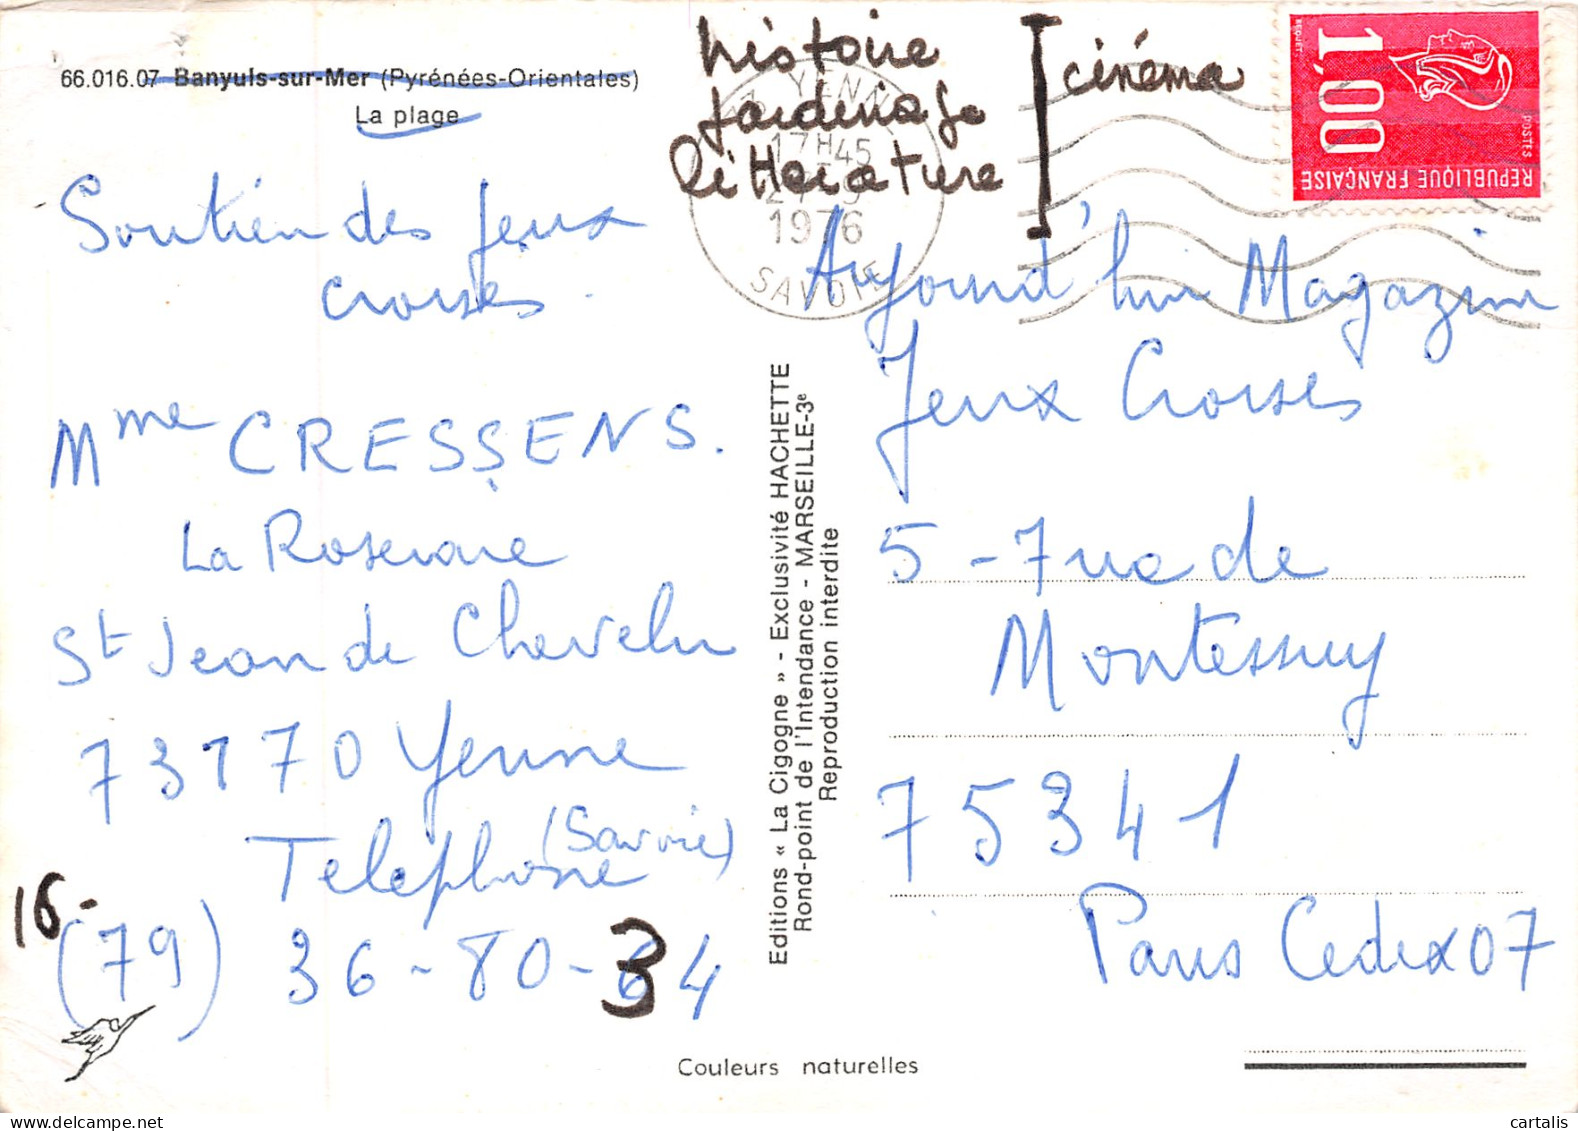 66.016.07 Banyuls-sur-Mer (Pyrénées-Orientales)
La plage
histoire
jardinage
littérature
cinéma
YENNE
17H45
1976
SAVOIE
1,00
POSTES
REPUBLIQUE FRANÇAISE
BEQUET
Soutien des jeux
croisés.
Mme CRESSENS.
La Roseraie
St Jean de Chevelu
73170 Yenne
(Savoie)
Telephone
16-
(79) 36-80-34
Editions « La Cigogne » - Exclusivité HACHETTE
Rond-point de l'Intendance - MARSEILLE-3e
Reproduction interdite
Aujourd'hui Magazine
Jeux Croisés
5-7 rue de
Montessuy
75341
Paris Cedex 07
Couleurs naturelles
www.delcampe.net
cartalis